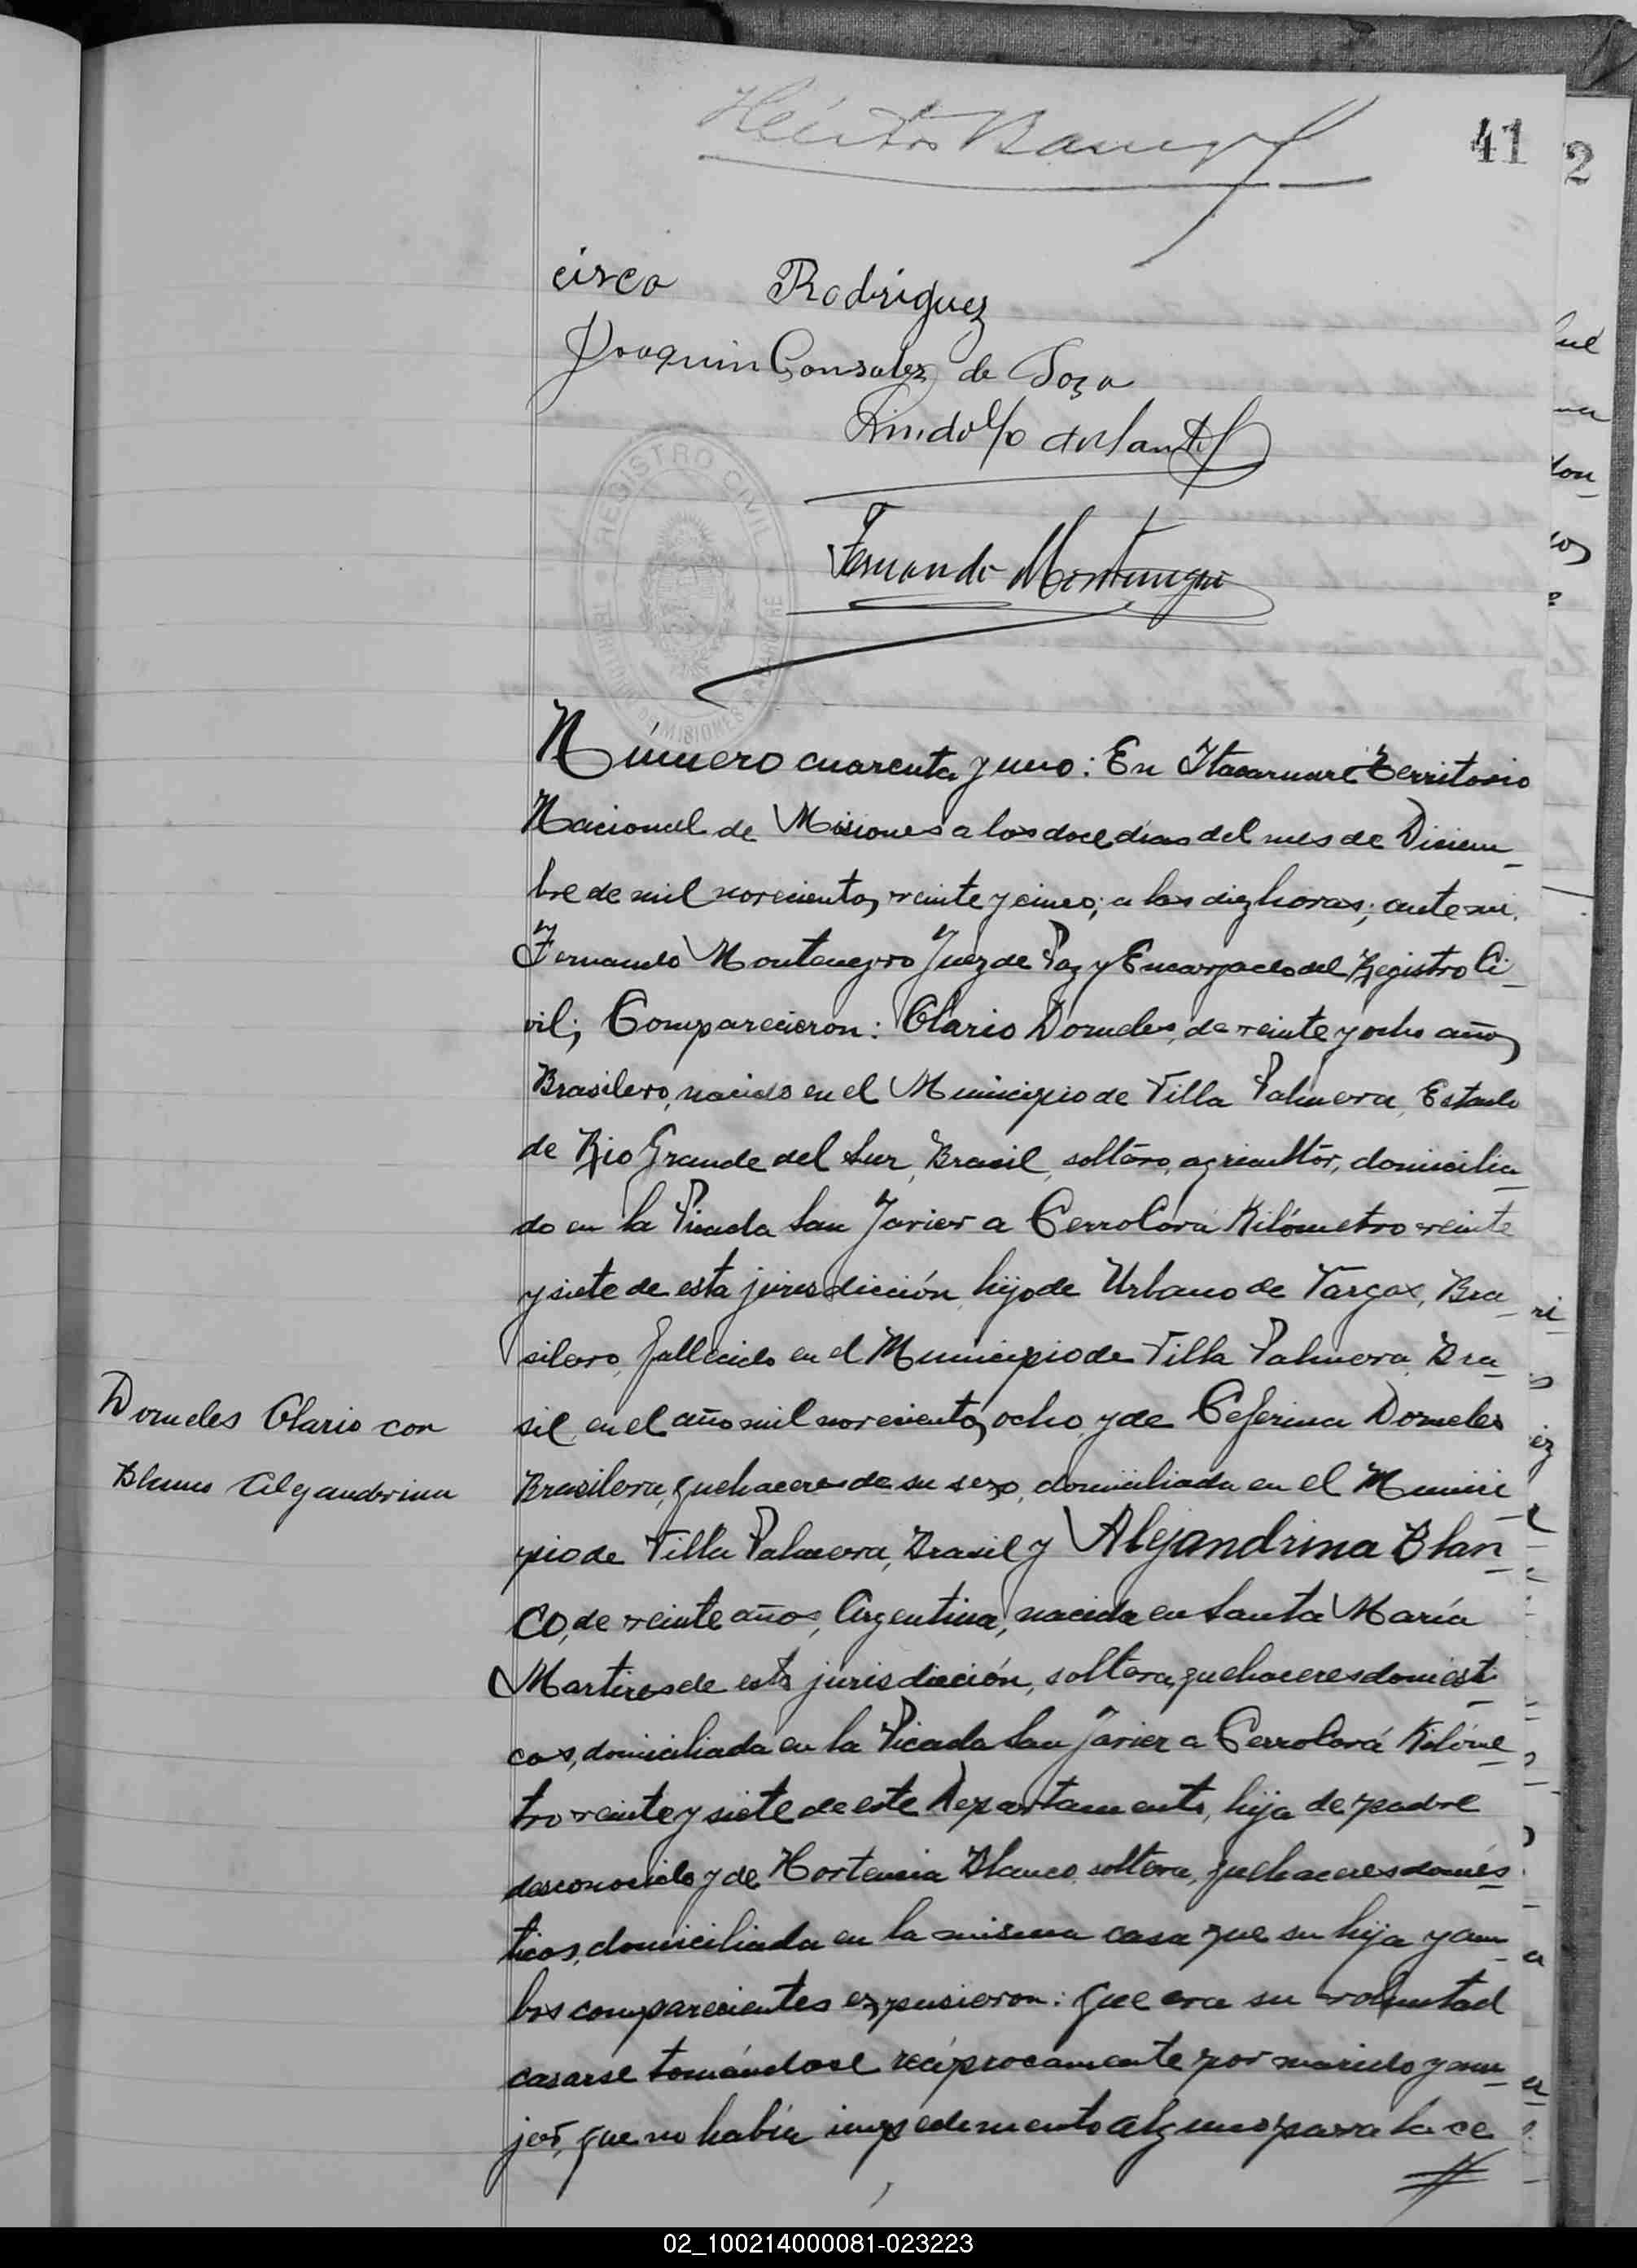 41
2
cisco Rodriguez
Joaquin Gonsalez de
Fernando Montenegro
REGISTRO CIVIL
Numero cuarenta y uno: En Itacaruaré Territorio
Nacional de Misiones a los doce dias del mes de Diciem-
bre de mil novecientos veinte y cinco; a las diez horas; ante mi,
Fernando Montenegro Juez de Paz y Encargado del Registro Ci-
vil; Comparecieron: Olario Dorneles, de veinte y ocho años
Brasilero, nacido en el Municipio de Villa Palmera, Estado
de Rio Grande del Sur, Brasil, soltero, agricultor, domicilia-
do en la Picada San Javier a Cerro Corá Kilómetro veinte
y siete de esta jurisdicción, hijo de Urbano de Vargas, Bra-
silero, fallecido en el Municipio de Villa Palmera, Bra-
sil, en el año mil novecientos ocho y de Ceferina Dorneles
Brasilera, quehaceres de su sexo, domiciliada en el Munici-
pio de Villa Palmera, Brasil y Alejandrina Blan-
co, de veinte años, Argentina, nacida en Santa María
Martires de esta jurisdicción, soltera, quehaceres domésti-
cos, domiciliada en la Picada San Javier a Cerro Corá Kilóme-
tro veinte y siete de este Departamento, hija de padre
desconocido y de Hortencia Blanco, soltera, quehaceres domés-
ticos, domiciliada en la misma casa que su hija y am-
bos comparecientes expusieron: que era su voluntad
casarse tomándose recíprocamente por marido y mu-
jer, que no había impedimento alguno para la ce
Dorneles Olario con
Blanco Alejandrina
02_100214000081-023223